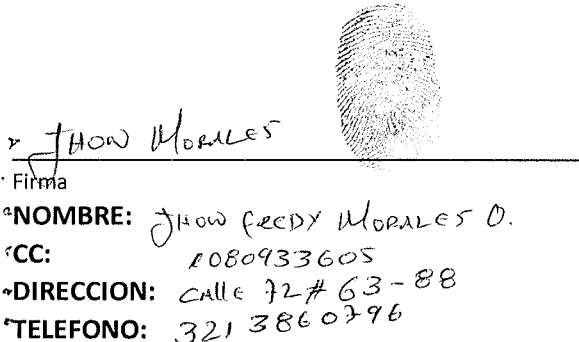 Jhon Morales
Firma
NOMBRE: Jhon Fredy Morales O.
CC: 1080933605
DIRECCION: Calle 72 # 63-88
TELEFONO: 321 3860796